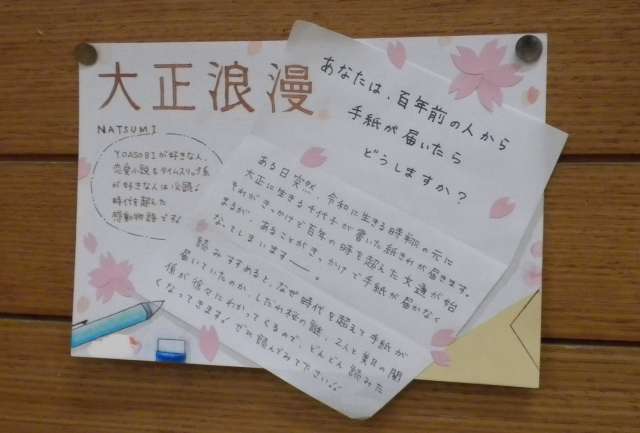 大正浪漫
NATSUMI
YOASOBIが好きな人、
恋愛小説&タイムスリップ系
が好きな人は必読!
時代を越えた
感動物語です!
あなたは、百年前の人から
手紙が届いたら
どうしますか?
ある日突然、令和に生きる時翔の元に
大正に生きる千代子が書いた紙きれが届きます。
それがきっかけで百年の時を超えた文通が始
まるが、あることがきっかけで手紙が届かなく
なってしまいます――。
読みすすめると、なぜ時代を超えて手紙が
届いていたのか、しだれ桜の謎、2人と美月の関
係が徐々にわかってくるので、どんどん読みた
くなってきます!ぜひ読んでみて下さい!!